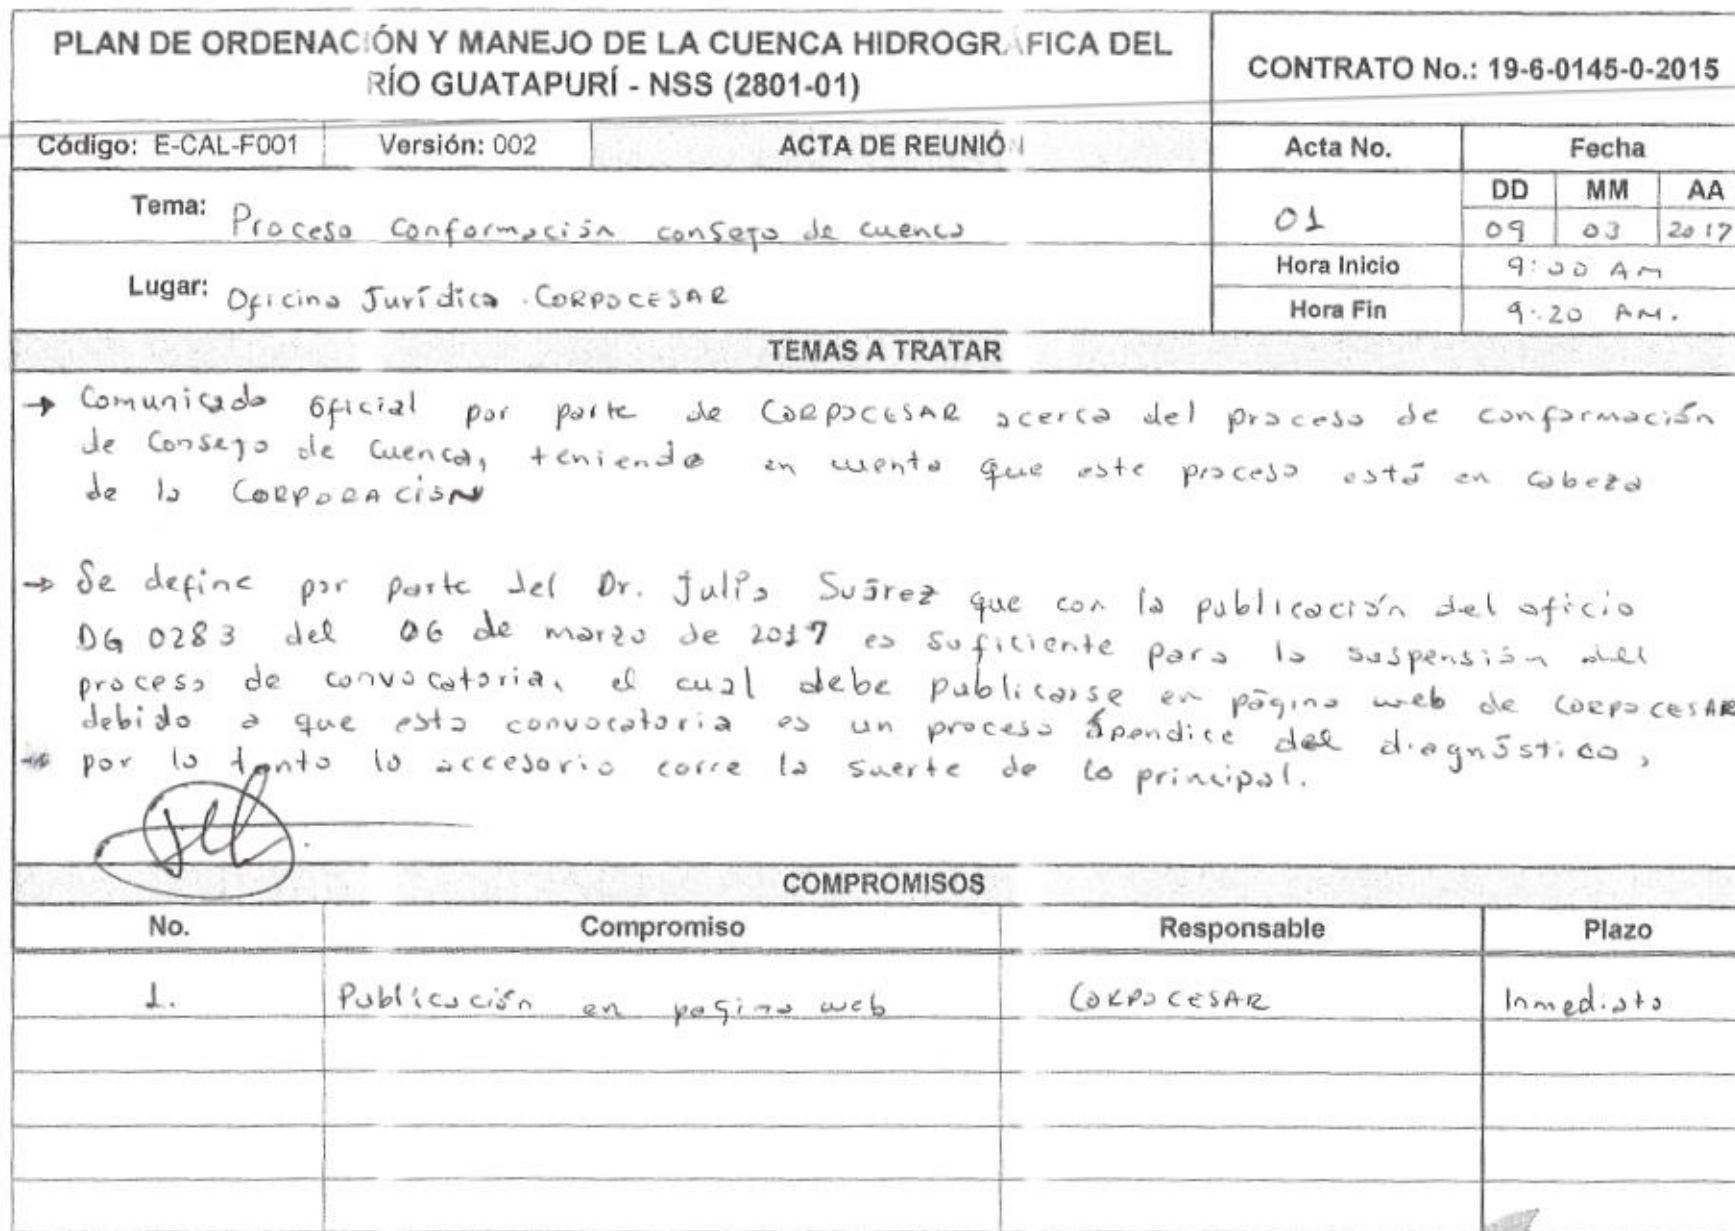 PLAN DE ORDENACIÓN Y MANEJO DE LA CUENCA HIDROGRÁFICA DEL
RÍO GUATAPURÍ - NSS (2801-01)
CONTRATO No.: 19-6-0145-0-2015
Código: E-CAL-F001 Versión: 002 ACTA DE REUNIÓN Acta No. Fecha
Tema: Proceso Conformación consejo de cuenca 01 DD MM AA
09 03 2017
Lugar: Oficina Jurídica. CORPOCESAR Hora Inicio 9:00 AM
Hora Fin 9:20 AM.
TEMAS A TRATAR
→ Comunicado oficial por parte de CORPOCESAR acerca del proceso de conformación
de Consejo de Cuenca, teniendo en cuenta que este proceso está en cabeza
de la CORPORACIÓN
→ Se define por parte del Dr. Julio Suárez que con la publicación del oficio
DG 0283 del 06 de marzo de 2017 es suficiente para la suspensión del
proceso de convocatoria, el cual debe publicarse en página web de CORPOCESAR
debido a que esta convocatoria es un proceso ápendice del diagnóstico,
por lo tanto lo accesorio corre la suerte de lo principal.
COMPROMISOS
No. Compromiso Responsable Plazo
1. Publicación en pagina web CORPOCESAR Inmediato